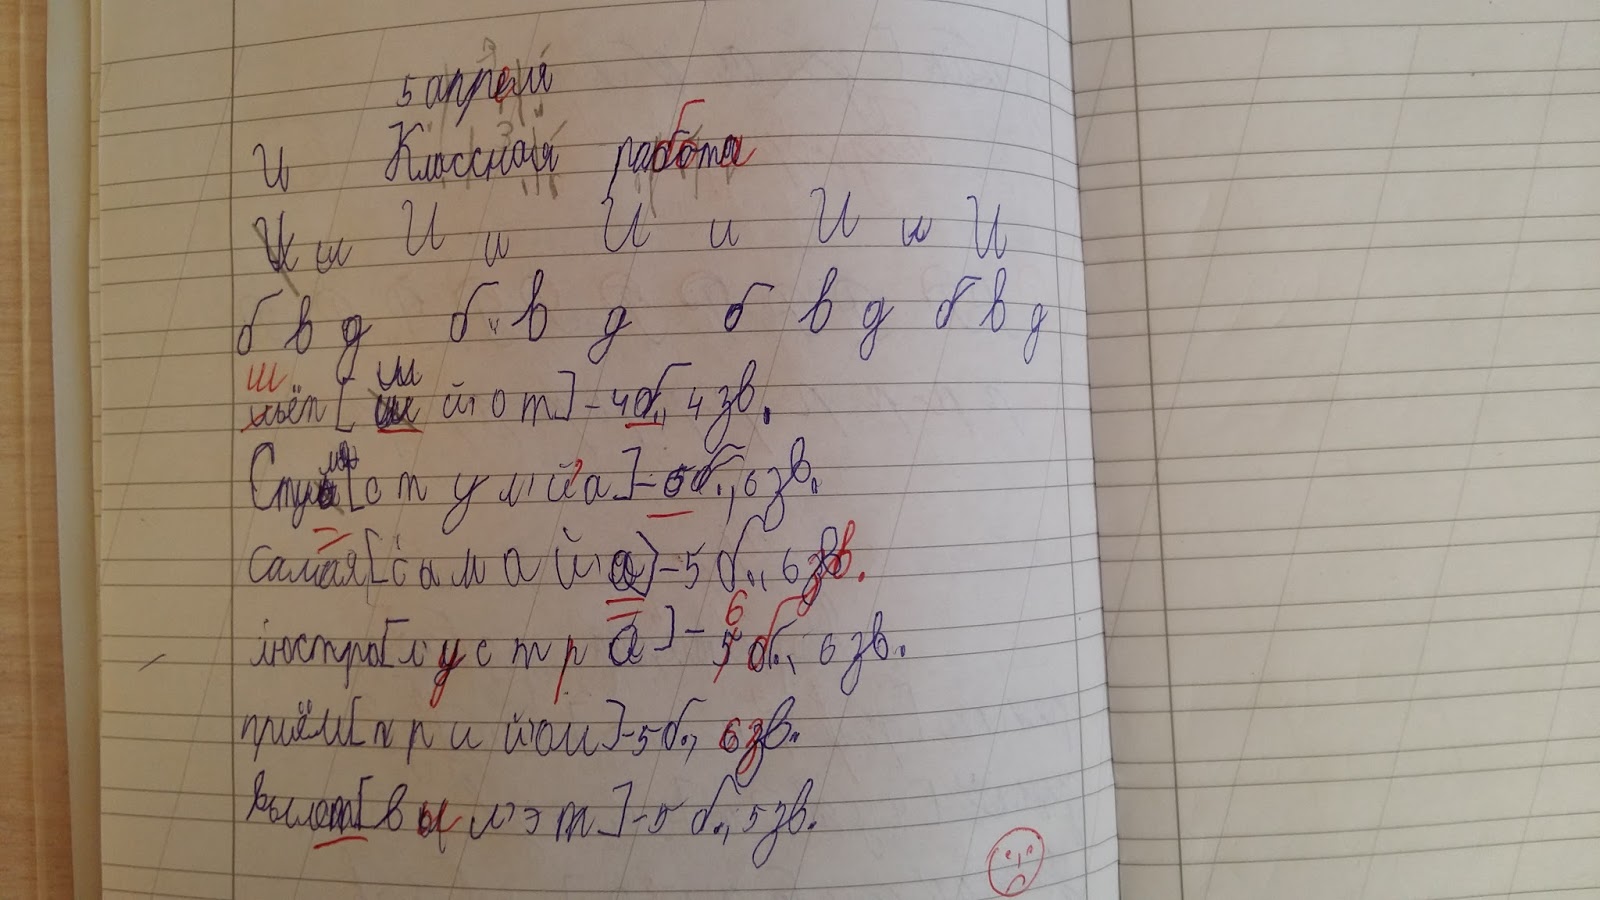 5 апреля
И Классная работа
И и И и И и И и И
б в д б в д б в д б в д
шьёт [ш й' о т] - 4 б., 4 зв.
[с т у л' й' а] - 5 б., 6 зв.
самая [с а м а й' а] - 5 б., 6 зв.
люстра [л' у с т р а] - 6 б., 6 зв.
приём [п р и й' о м] - 5 б., 6 зв.
вылет [в ы л' э т] - 5 б., 5 зв.